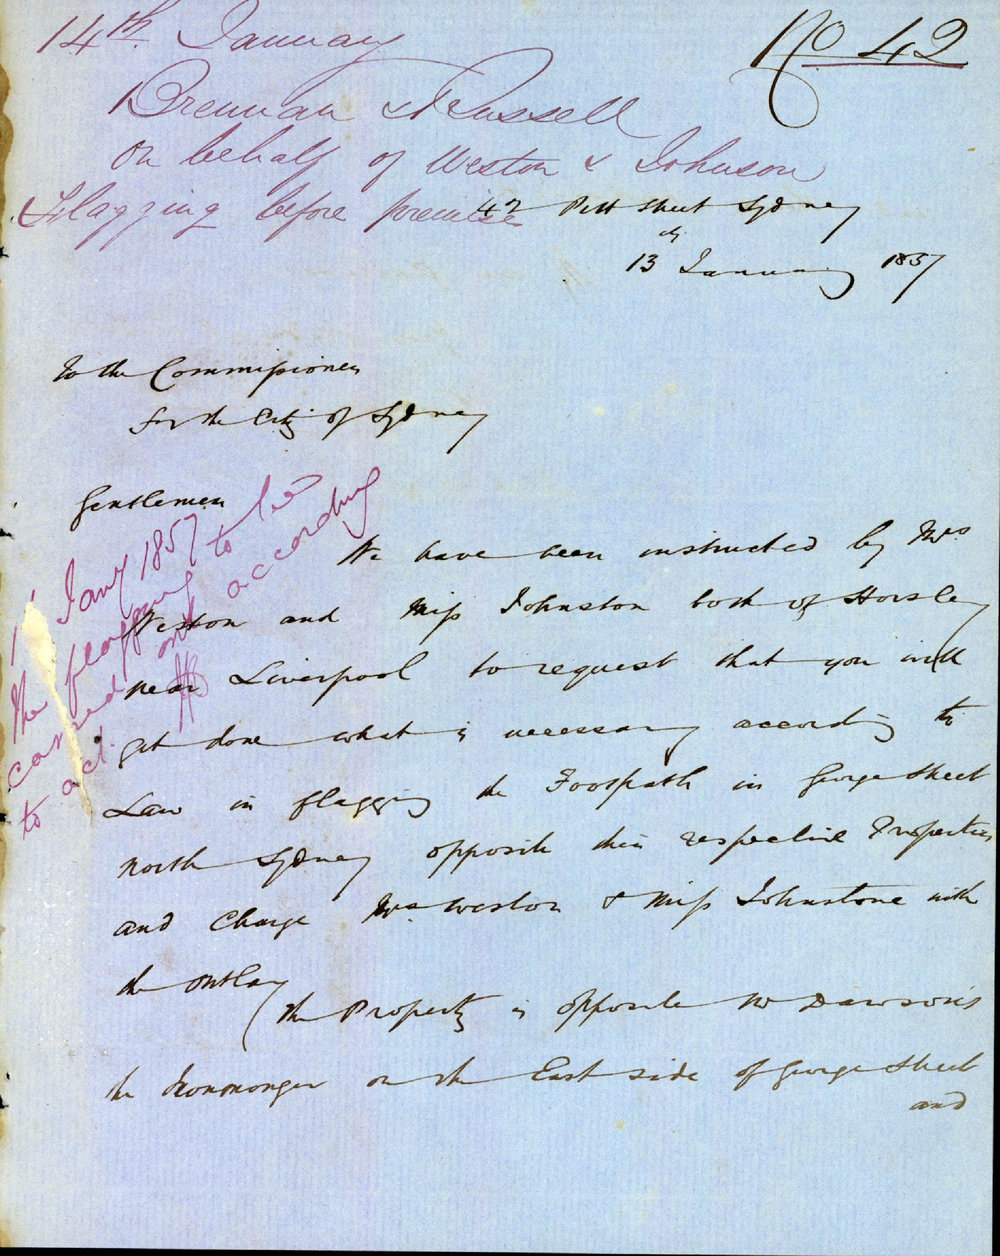 14th January
No 42
Brennan & Russell
on behalf of Weston & Johnson
Flagging before premise
42 Pitt Street Sydney
13th January 1857
To the Commissioners
for the City of Sydney
Gentlemen
We have been instructed by Mrs
Weston and Miss Johnston both of Horsley
near Liverpool to request that you will
get done what is necessary according to
Law in flagging the Footpath in George Street
North Sydney opposite their respective Properties
and Charge Mrs Weston & Miss Johnstone with
the outlay
The Property is opposite Mr Dawson's
the Ironmonger on the East side of George Street
and
Jany 1857
The flagging to be
carried out according
to act